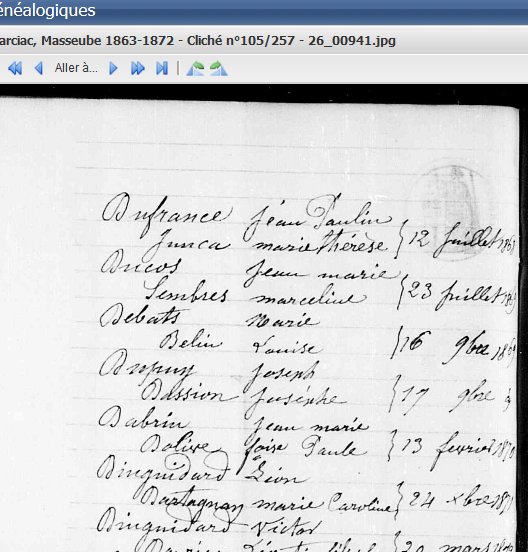 énéalogiques
arciac, Masseube 1863-1872 - Cliché n°105/257 - 26_00941.jpg
Aller à...
Dufrance Jean Paulin
Junca marie thérèse } 12 Juillet
Ducos Jean marie
Sembres marceline } 23 Juillet
Debats Marie
Belin Louise } 16 9bre
Dupuy Joseph
Dassion Josèphe } 17 9bre
Dabrin Jean marie
Dolive foise Paule } 13 fevrier
Dinguidard Léon
Dartagnan marie Caroline } 24 xbre
Dinguidard Victor
20 mars